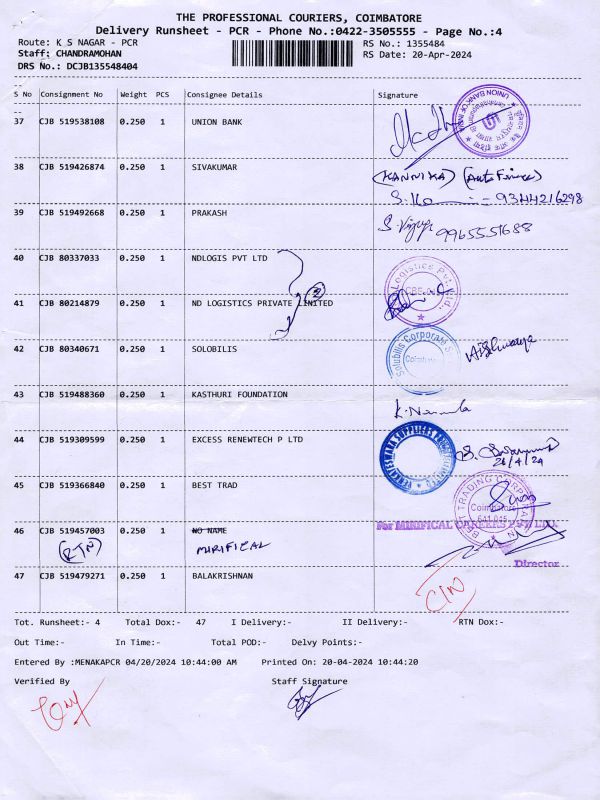 THE PROFESSIONAL COURIERS, COIMBATORE
Delivery Runsheet - PCR - Phone No.:0422-3505555 - Page No.:4
Route: K S NAGAR - PCR
RS No.: 1355484
Staff: CHANDRAMOHAN
RS Date: 20-Apr-2024
DRS No.: DCJB135548404
S No Consignment No Weight PCS Consignee Details Signature
37 CJB 519538108 0.250 1 UNION BANK
UNION BANK OF INDIA
38 CJB 519426874 0.250 1 SIVAKUMAR
(KANNIKA) (Auto Finance)
9344216298
39 CJB 519492668 0.250 1 PRAKASH
9965551688
40 CJB 80337033 0.250 1 NDLOGIS PVT LTD
Logistics Pvt Ltd.
2
41 CJB 80214879 0.250 1 ND LOGISTICS PRIVATE LIMITED
42 CJB 80340671 0.250 1 SOLOBILIS
Solubilis Corporate S
43 CJB 519488360 0.250 1 KASTHURI FOUNDATION
44 CJB 519309599 0.250 1 EXCESS RENEWTECH P LTD
45 CJB 519366840 0.250 1 BEST TRAD
BEST TRADING CORPORATION
Coimbatore
For MIRIFICAL CAREERS PVT. LTD.
46 CJB 519457003 0.250 1 NO NAME
(RTN) MIRIFICAL
Director
47 CJB 519479271 0.250 1 BALAKRISHNAN
Tot. Runsheet:- 4 Total Dox:- 47 I Delivery:- II Delivery:- RTN Dox:-
Out Time:- In Time:- Total POD:- Delvy Points:-
Entered By :MENAKAPCR 04/20/2024 10:44:00 AM Printed On: 20-04-2024 10:44:20
Verified By Staff Signature